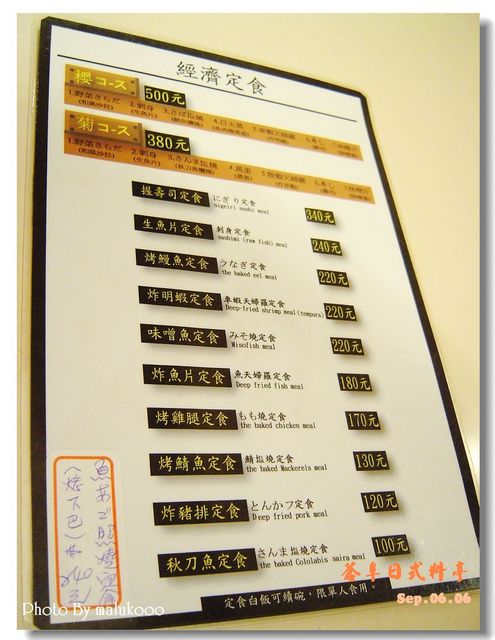 經濟定食
櫻コース 500元
1.野菜さらだ 2.刺身 3.さば塩燒
(和風沙拉) (生魚片)
菊コース 380元
1.野菜さらだ 2.刺身 3.さんま塩燒 4.蒸蛋
(和風沙拉) (生魚片) (秋刀魚鹽燒)
握壽司定食 にぎり定食 340元
nigeiri sushi meal
生魚片定食 刺身定食 240元
sashimi (raw fish) meal
烤鰻魚定食 うなぎ定食 220元
the baked eel meal
炸明蝦定食 車蝦天婦羅定食 220元
Deep-fried shrimp meal(tempura)
味噌魚定食 みそ燒定食 220元
Misofish meal
炸魚片定食 魚天婦羅定食 180元
Deep fried fish meal
烤雞腿定食 もも燒定食 170元
the baked chicken meal
烤鯖魚定食 鯖塩燒定食 130元
the baked Mackerels meal
炸豬排定食 とんかつ定食 120元
Deep fried pork meal
秋刀魚定食 さんま塩燒定食 100元
the baked Cololabis saira meal
定食白飯可續碗，限單人食用。
魚あご照燒定食
(烤下巴) $240元
日式料亭
Sep.06.06
Photo By malukooo